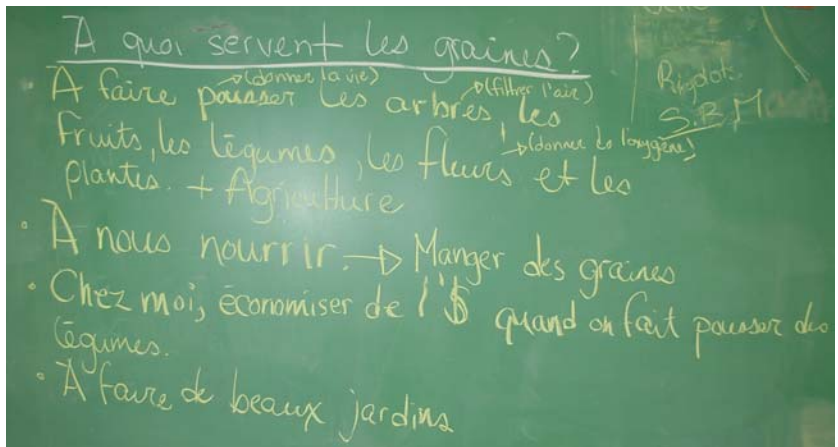 A quoi servent les graines?
A faire pousser les arbres, les
→(donner la vie) →(filtrer l'air)
fruits, les légumes, les fleurs et les
→(donner de l'oxygène)
plantes. + Agriculture
• A nous nourrir. → Manger des graines
• Chez moi, économiser de l'$ quand on fait pousser des
légumes.
• A faire de beaux jardins
S.B.M